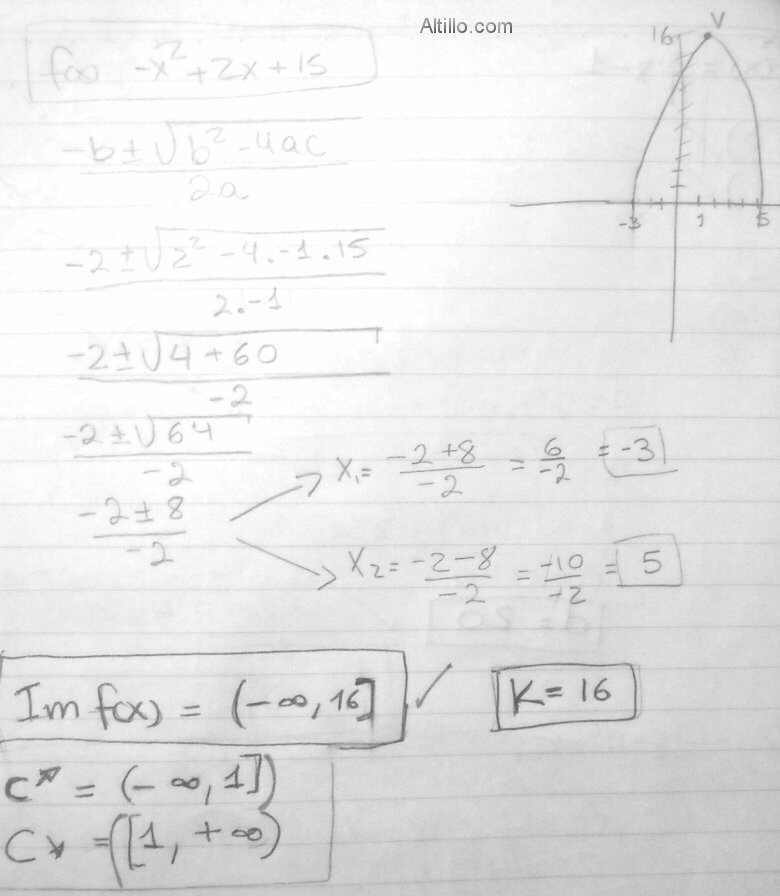 Altillo.com
f(x) -x² + 2x + 15
-b ± √b² - 4ac
2a
-2 ± √2² - 4 . -1 . 15
2 . -1
-2 ± √4 + 60
-2
-2 ± √64
-2
-2 ± 8
-2
X₁ = -2 + 8 / -2 = 6 / -2 = -3
X₂ = -2 - 8 / -2 = -10 / -2 = 5
V
16
-3 1 5
Im f(x) = (-∞, 16] ✓
K = 16
C↗ = (-∞, 1])
C↘ = ([1, +∞)